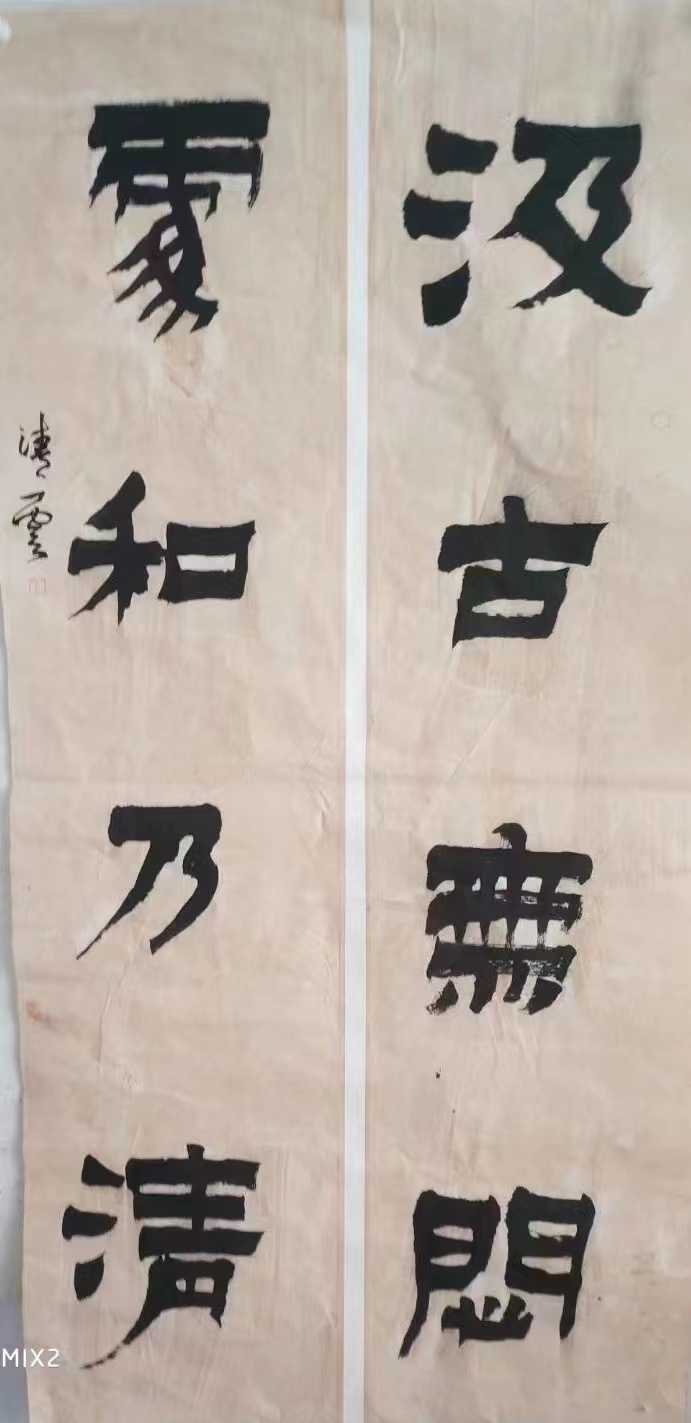 汲古無悶
處和乃清
清雲
MIX2